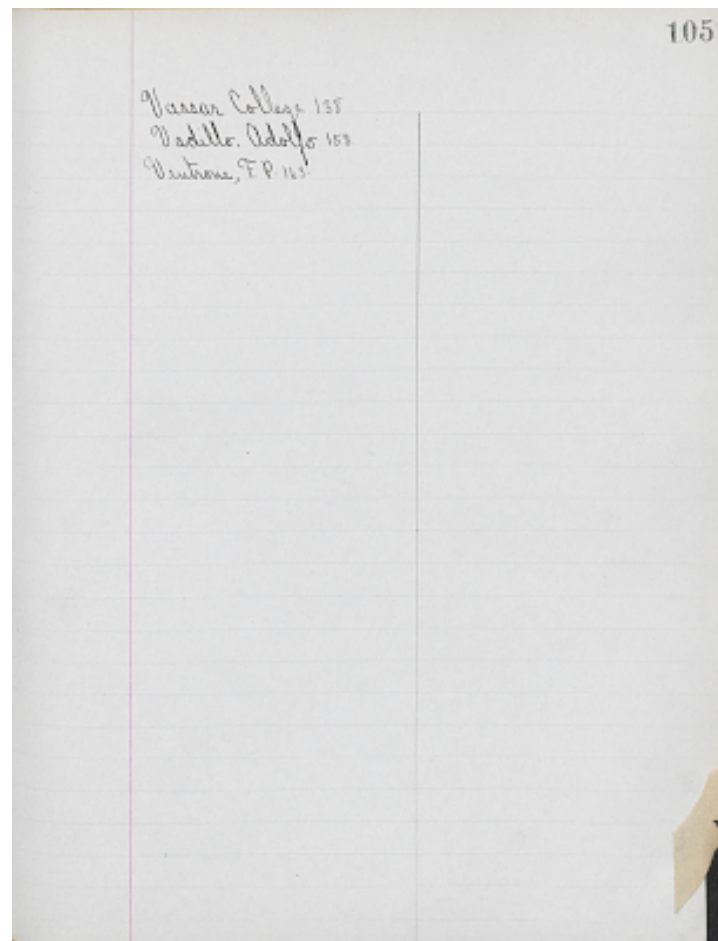 105
Vassar College 135
Vadillo. Adolfo 153
Ventrone, F. P. 163